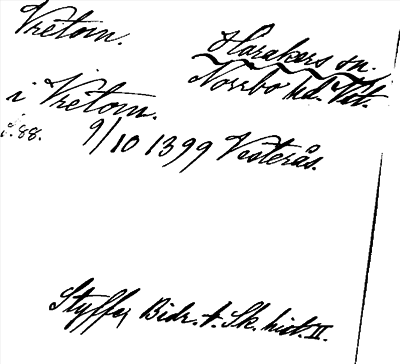 Vretom.
Harakers sn.
Norrbo hd. Vst.
i Vretom.
s. 88.
9/10 1399 Vesterås.
Styffe, Bidr. t. Sk. hist. II.